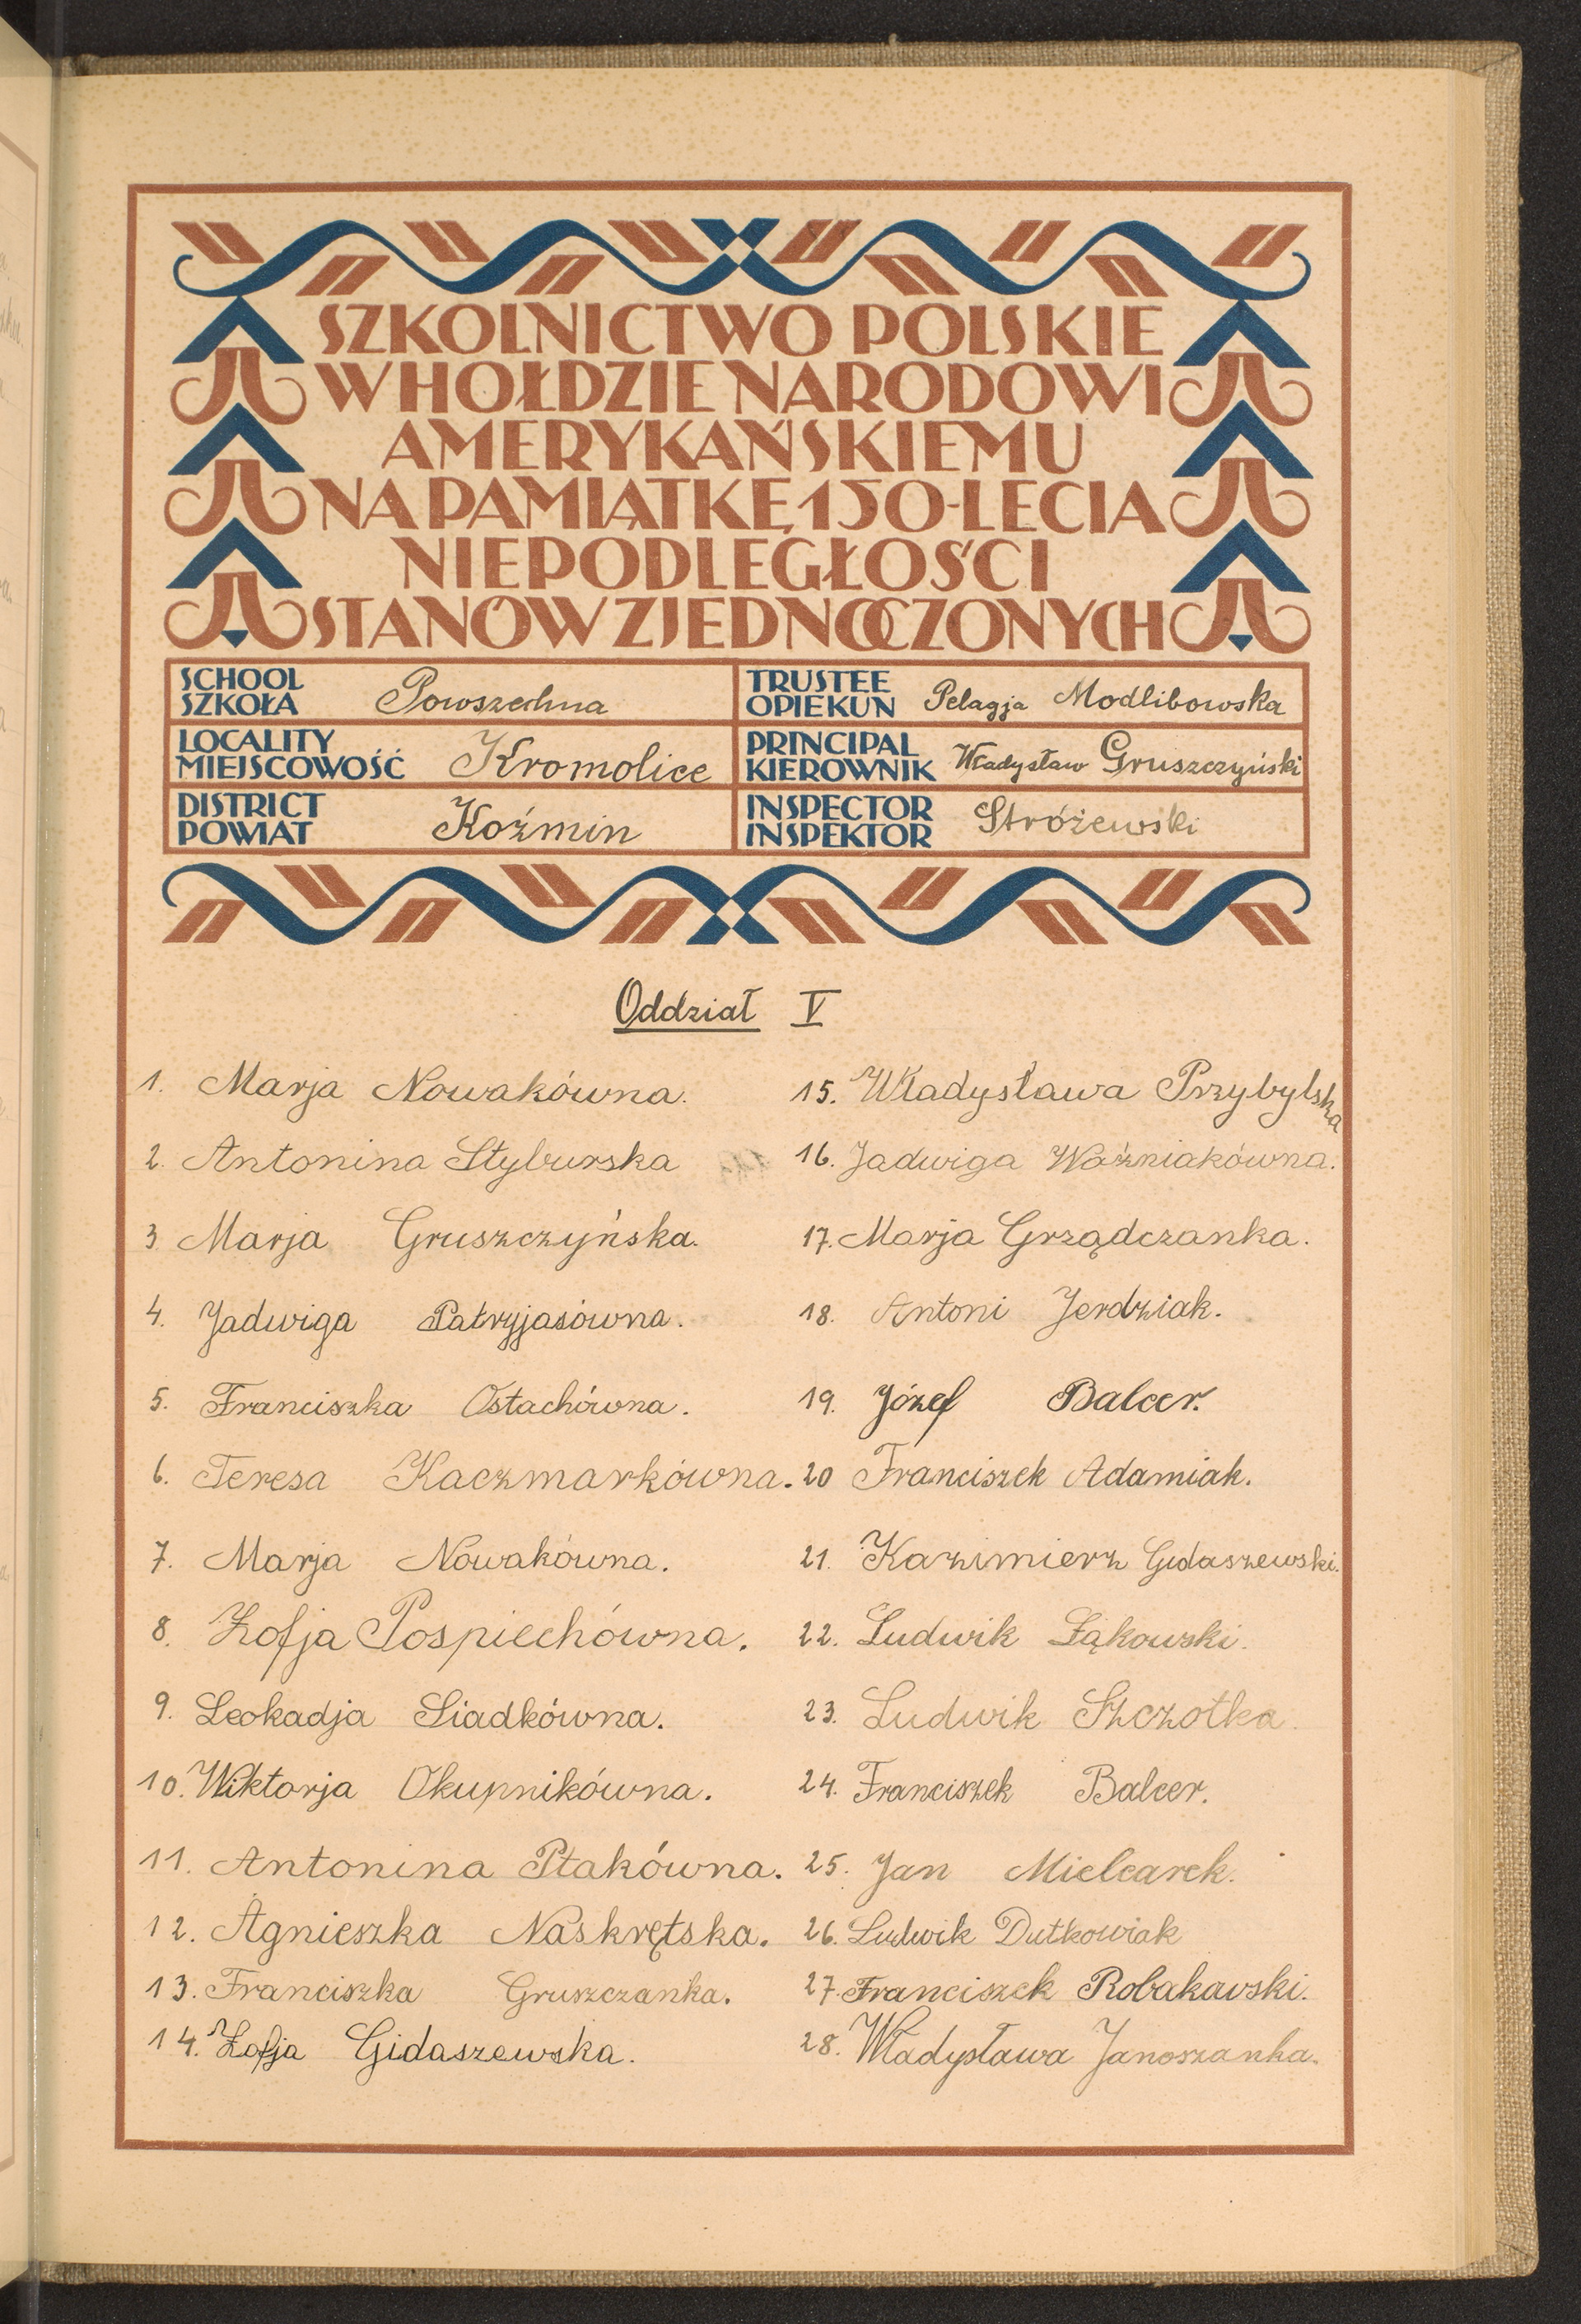 SZKOLNICTWO POLSKIE
W HOŁDZIE NARODOWI
AMERYKAŃSKIEMU
NA PAMIĄTKĘ 150-LECIA
NIEPODLEGŁOŚCI
STANÓW ZJEDNOCZONYCH
SCHOOL
SZKOŁA Powszechna
TRUSTEE
OPIEKUN Pelagja Modlibowska
LOCALITY
MIEJSCOWOŚĆ Kromolice
PRINCIPAL
KIEROWNIK Władysław Gruszczyński
DISTRICT
POWIAT Koźmin
INSPECTOR
INSPEKTOR Stróżewski
Oddział V
1. Marja Nowakówna.
2. Antonina Styburska
3 Marja Gruszczyńska.
4. Jadwiga Patryjasówna.
5. Franciszka Ostachówna.
6. Teresa Kaczmarkówna.
7. Marja Nowakówna.
8. Zofja Pospiechówna.
9. Leokadja Siadkówna.
10. Wiktorja Okupnikówna.
11. Antonina Ptakówna.
12. Agnieszka Naskrętska.
13. Franciszka Gruszczanka.
14. Zofja Gidaszewska.
15. Władysława Przybylska
16. Jadwiga Woźniakówna.
17. Marja Grządczanka.
18. Antoni Jerdziak.
19. Józef Balcer.
20 Franciszek Adamiak.
21. Kazimierz Gidaszewski.
22. Ludwik Łąkowski.
23. Ludwik Szczotka.
24. Franciszek Balcer.
25. Jan Mielcarek.
26. Ludwik Dutkowiak
27. Franciszek Robakowski.
28. Władysława Janoszanka.